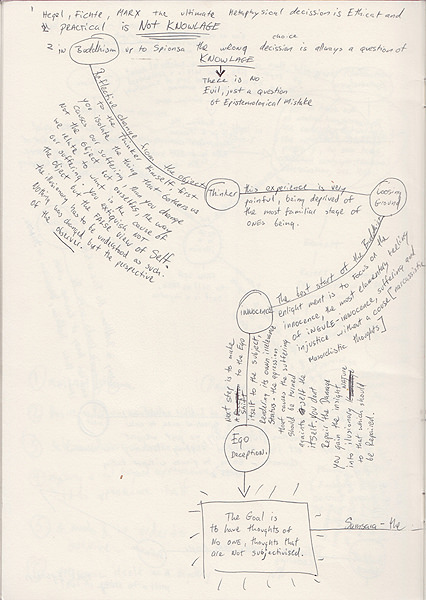 1
Hegel, Fichte, MARX the ultimate Metaphysical decission is Ethical and
practical is NOT KNOWLAGE
choice
2 in Buddhism or to Spionsa the wrong decission is always a question of
KNOWLAGE
There is NO
Evil, just a question
of Epistemological Mistake
Reflective change from the object
to the Thinker himself. first
you isolate the thing that bothers us
causes our suffering then you change
NOT the object but ourselves, the way
we relate to what is the cause of
our suffering, you extiquish NOT
the object but the FALSE view of Self.
the illusionary has to be understood as such.
Nothing was changed but the perspective
of the observer.
Thinker
this experience is very
painful, being deprived of
the most familiar stage of
ONEs being.
Loosing
Ground
The best start of the Buddhist
enlightment is to Focus on the
innocence, the most elementary feeling
of iNGULE-INNOCENCE, suffering and
injustice without a cause [narcissistic
Monadistic thoughts]
INNOCENCE
Next step is to make
Shift to the Ego
itself to the subject
Realizing its own illusionary
Status - the agression
that causes the suffering
should be turned
againts itself the
itself, you dont
Repair the Damage
you gain the insight
into ilusionary
to that which should
be Repaired.
Ego
DECEPTION.
The Goal is
to have thoughts of
NO ONE, thoughts that
are NOT subjectivised.
Samsara - the